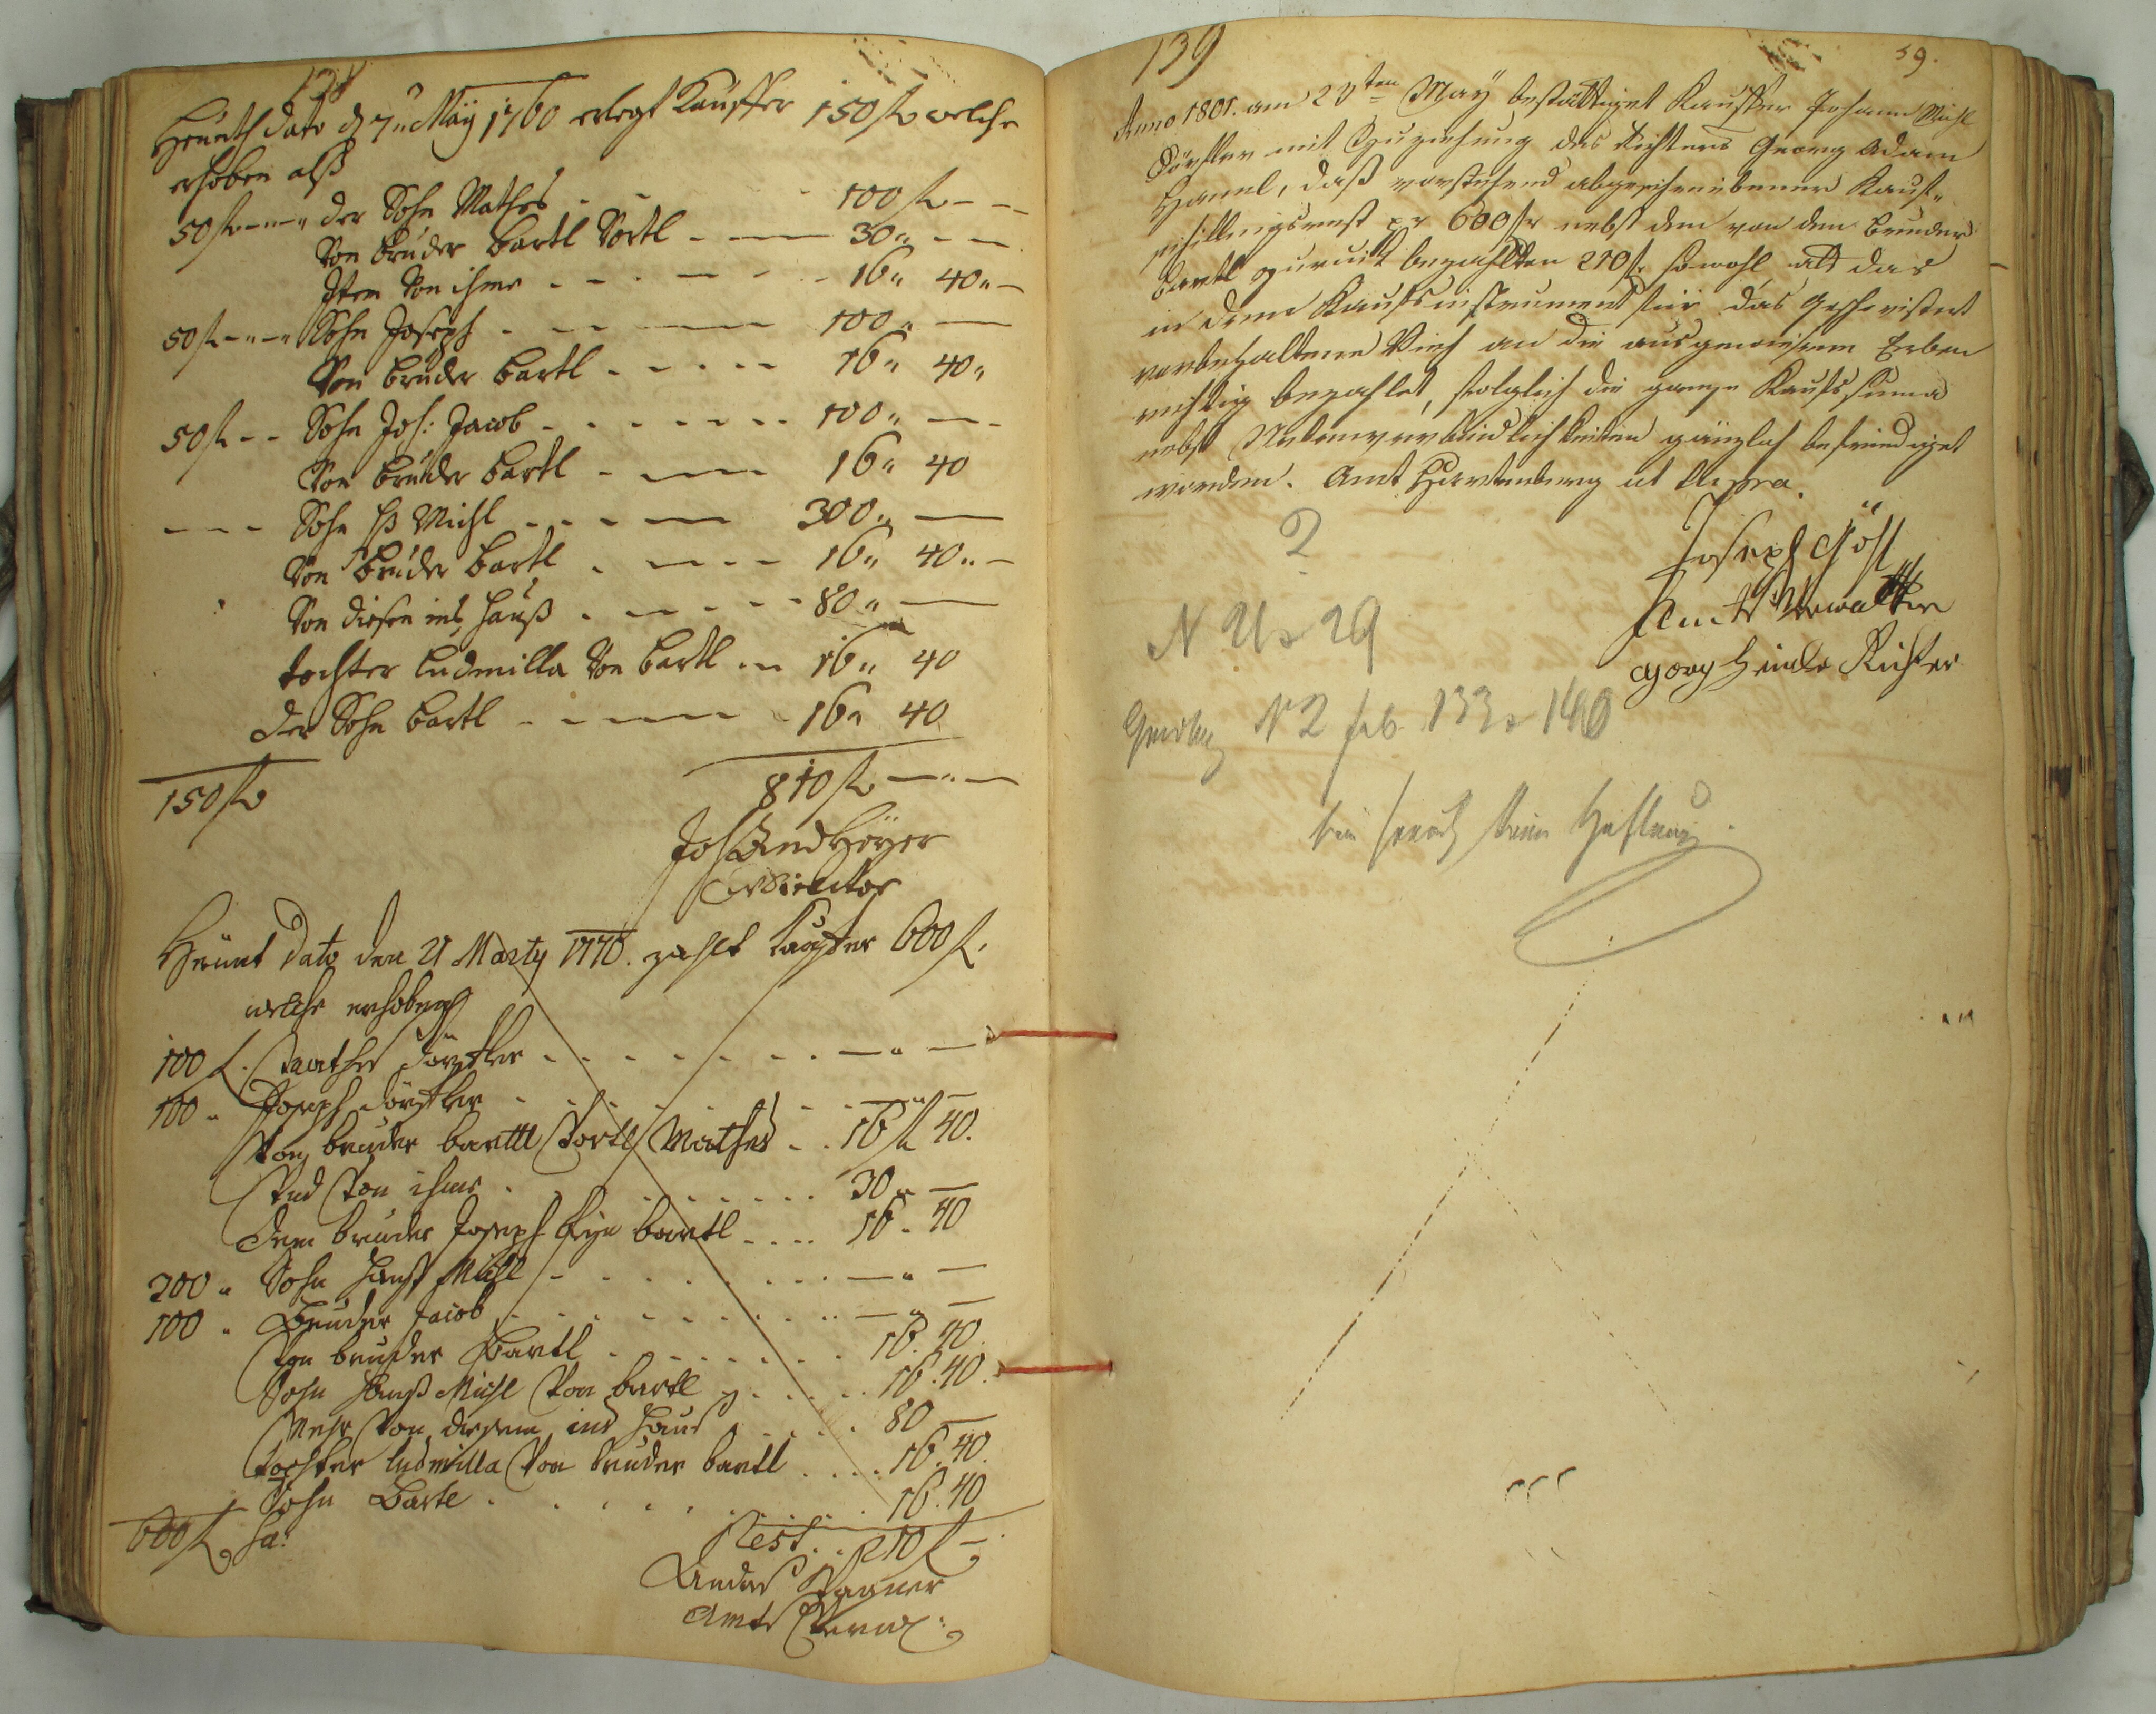 138
Heünth dato d 7n May 1760 erlegt Kauffer 150 fl welche
erhoben alß
50 fl – – – der Sohn Mathes - - - 100 fl – –
Von bruder Bartl Dörtl - — 30 " – –
Item Von ihme - - - - - 16 " 40 " –
50 fl – – – Sohn Joseph - - - — 100 " —
Von bruder Bartl - - - - - 16 " 40 "
50 fl – – Sohn Joh: Jacob - - - - - - 100 " – –
Von bruder Bartl - — 16 " 40
– – – Sohn Michl - - - — 300 " —
Von bruder Bartl - — - - 16 " 40 " –
Von diesen ins Hauß - — - - - 80 " —
tochter Ludmilla Von Bartl - - 16 " 40
Der Sohn Bartl - - — 16 " 40
150 fl 810 fl — " —
Joh And Höyer
Heünt Dato den 21 Marty 1770. zahlt Kauffer 600 fl.
welche erhoben
100 fl. Mathes Dörtler - - - - - - - — " —
100 " Joseph Dörtler - - - - - - - — " —
Von bruder Barttl Mathes - - 16 fl 40.
Und Von ihme - - - - - - - 30 " —
Dem bruder Joseph Bartl - - - - 16 " 40
200 " Sohn Hanß Michl - - - - - - - — " —
100 " Bruder Jacob - - - - - - - — " —
Von bruder Bartl - - - - - - - 16. 40.
Sohn Hanß Michl Von Bartl - - - - 16. 40.
Mehr Von diesem ins Hauß - - - - 80 —
Tochter Ludmilla Von bruder Bartl - - - - 16. 40.
Sohn Bartl - - - - - - - 16. 40
600 fl Sa: Rest . . 210 fl –
Andreas Wagner
Amts Verw:
139
59.
Anno 1801. am 20ten May bestättiget Kauffer Johann Michl
Dörfler mit Zuziehung des Richters Georg Adam
Hamel, daß vorstehend abgeschriebener Kauf-
schillingsrest pr 600 fr nebst dem von dem Bruder
Bartl zuruck bezahlten 210 fr sowohl als das
in dem Kaufsinstrument für das Geschwistert
vorbehaltene Vieh an die ausgewiesene Erben
richtig bezahlet, folglich die ganze Kaufs Suma
nebst Nebenverbindlichkeiten gänzlich befriediget
worden. Amt Hartenberg ut Supra.
Joseph Gößl
Amts Verwalter
Georg Heinl Richter
?
N 21 29
N 2 fol. 133 140
kein Haftung.